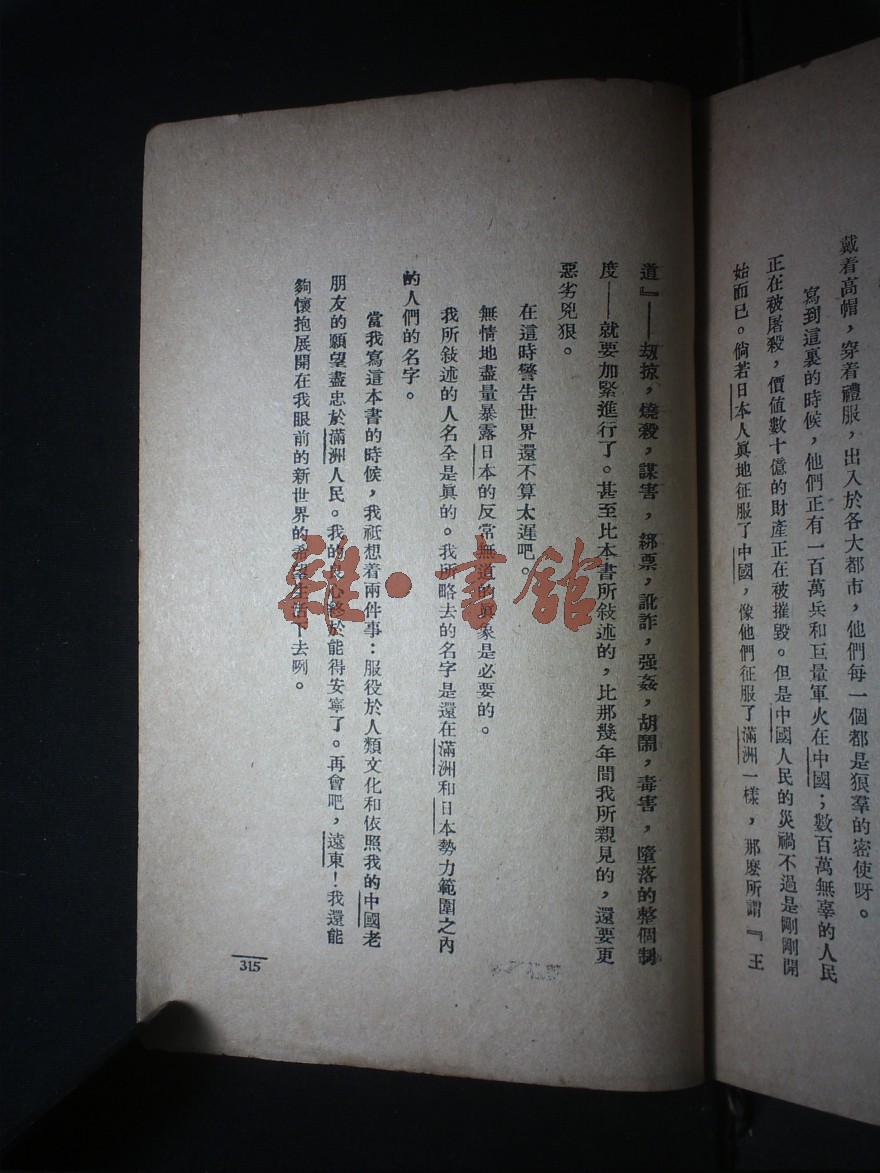 戴着高帽，穿着禮服，出入於各大都市，他們每一個都是狼羣的密使呀。
寫到這裏的時候，他們正有一百萬兵和巨量軍火在中國；數百萬無辜的人民
正在被屠殺，價值數十億的財產正在被摧毀。但是中國人民的災禍不過是剛剛開
始而已。倘若日本人眞地征服了中國，像他們征服了滿洲一樣，那麽所謂『王
道』——刼掠，燒殺，謀害，綁票，訛詐，强姦，胡鬧，毒害，墮落的整個制
度——就要加緊進行了。甚至比本書所敍述的，比那幾年間我所親見的，還要更
惡劣兇狠。
在這時警告世界還不算太遲吧。
無情地盡量暴露日本的反常無道的眞象是必要的。
我所敍述的人名全是眞的。我所略去的名字是還在滿洲和日本勢力範圍之內
的人們的名字。
當我寫這本書的時候，我祗想着兩件事：服役於人類文化和依照我的中國老
朋友的願望盡忠於滿洲人民。我的良心終於能得安寧了。再會吧，遠東！我還能
夠懷抱展開在我眼前的新世界的希望生活下去咧。
315
雜·書館